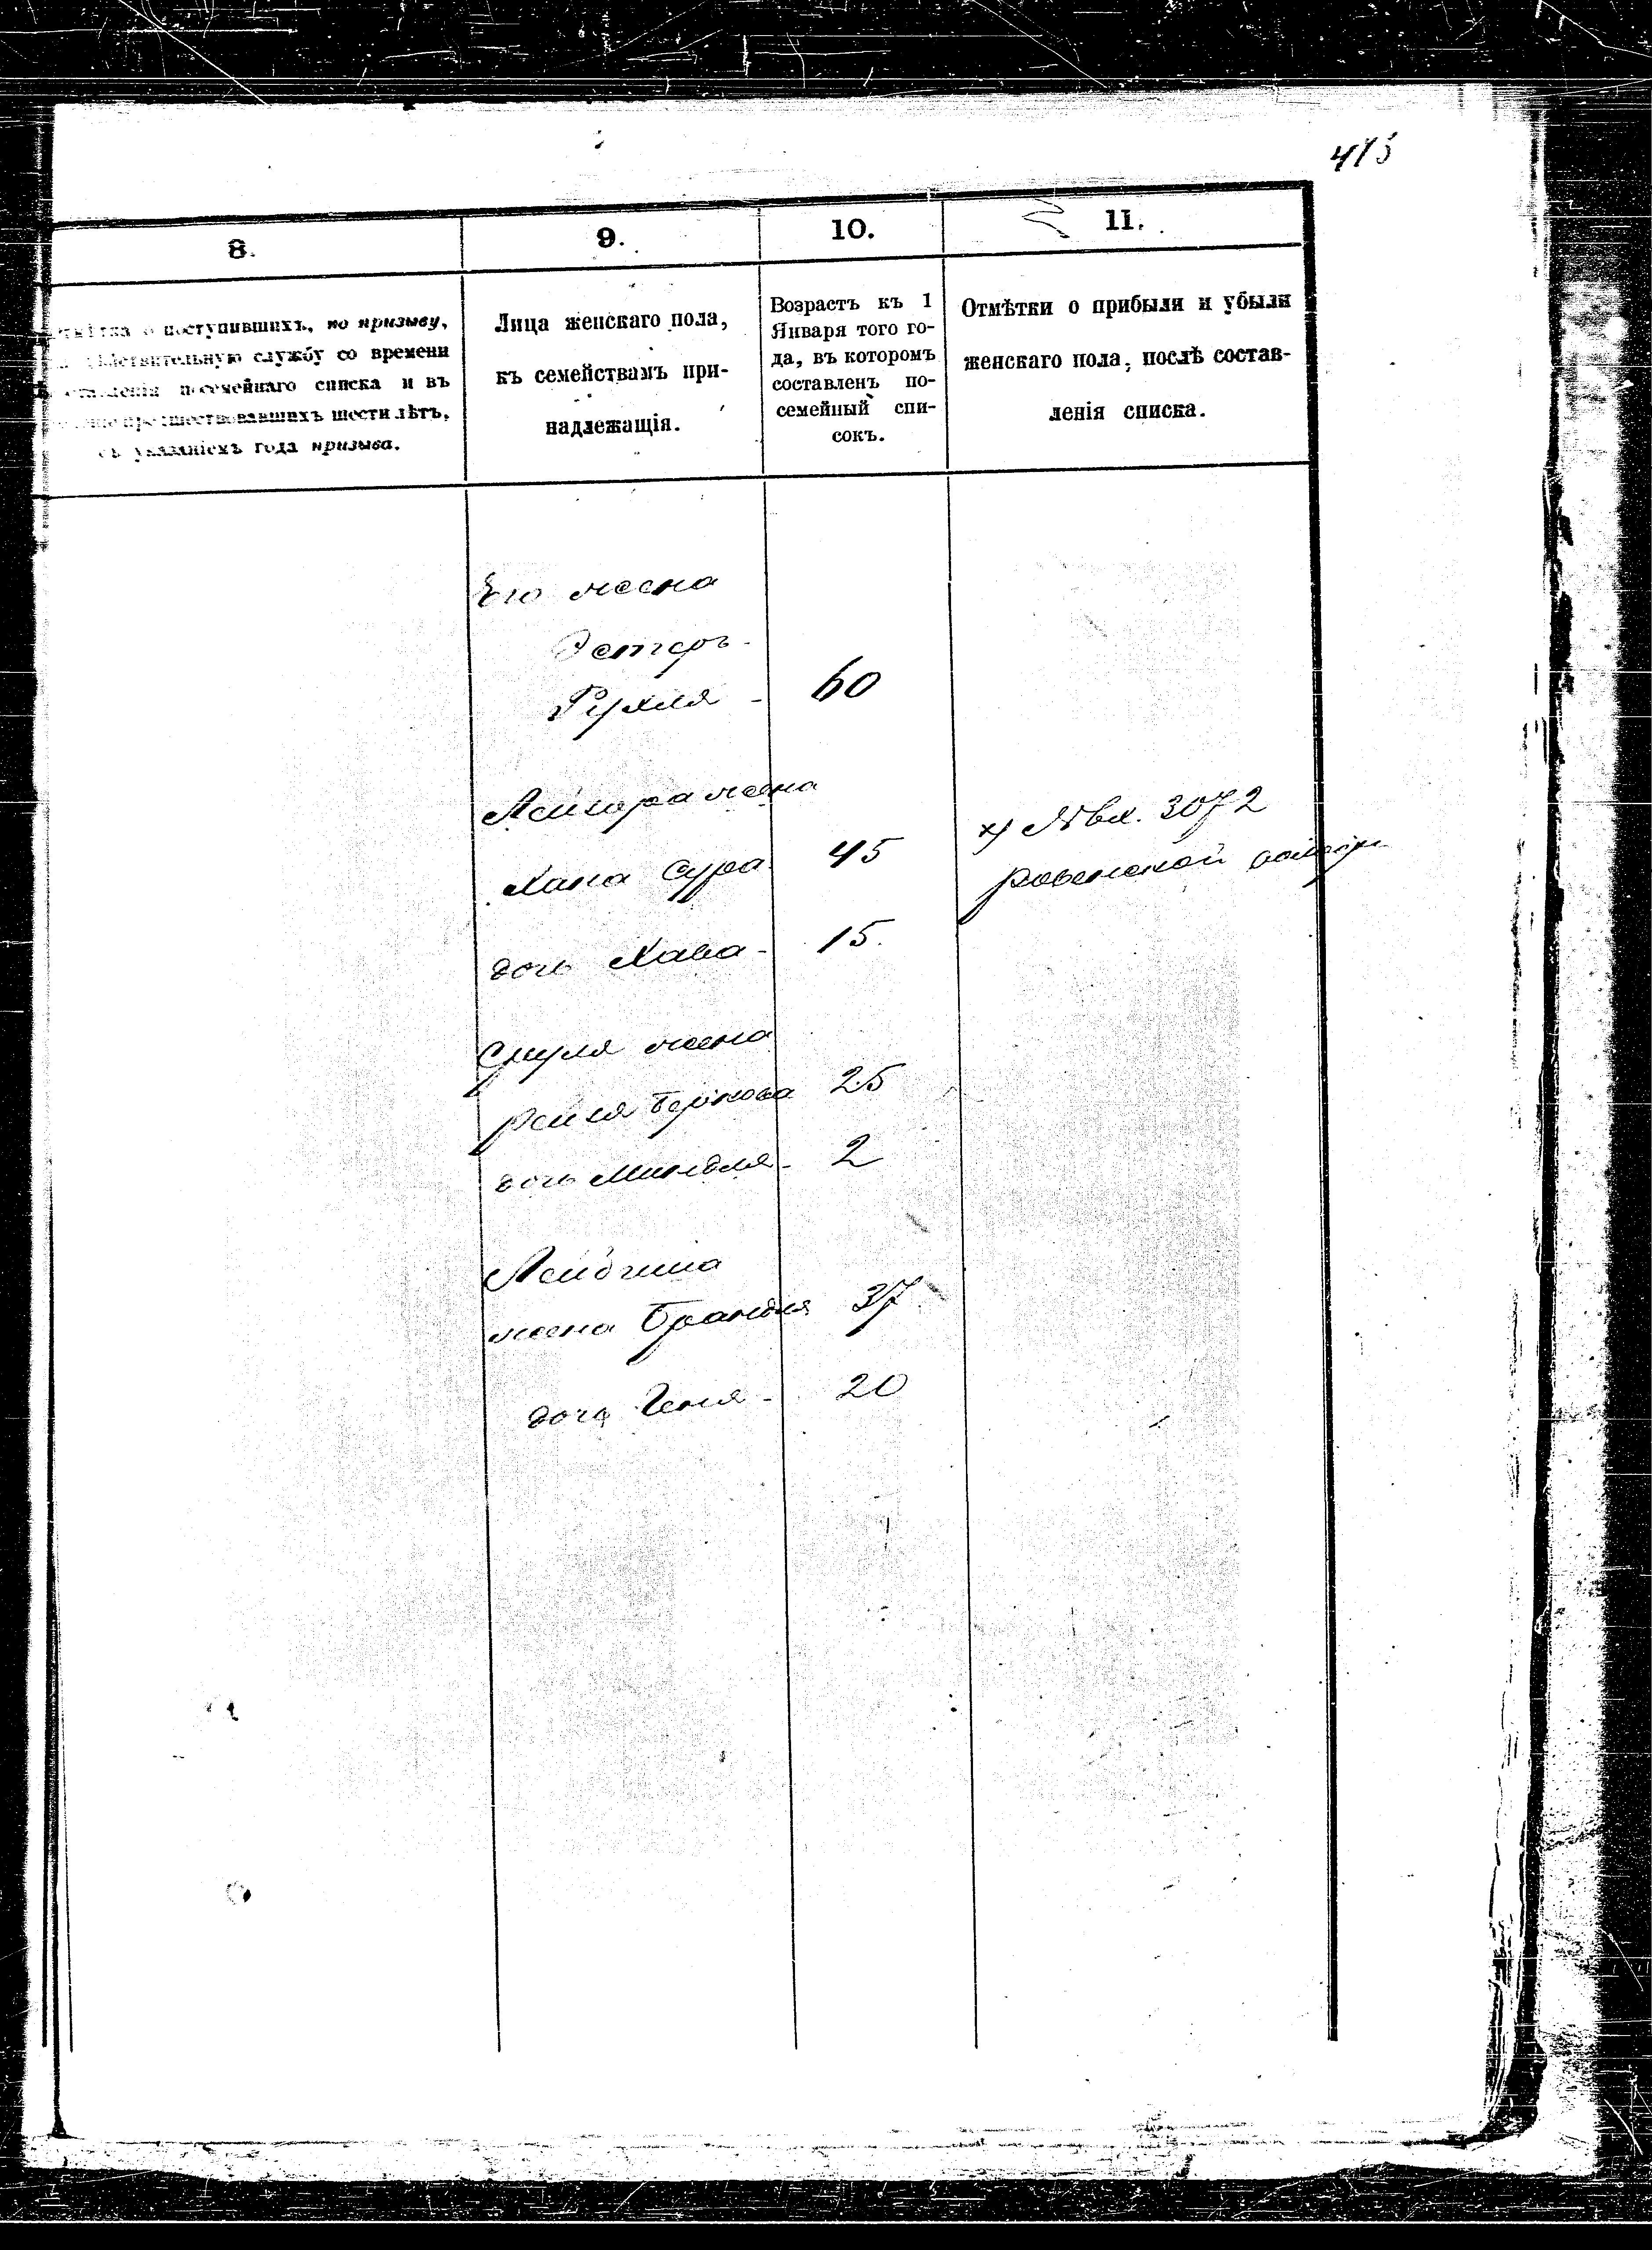 415
8.
9.
10.
11.
о поступившихъ, по призыву,
дѣйствительную службу со времени
составленія посемейнаго списка и въ
предшествовавшихъ шести лѣтъ,
съ указаніемъ года призыва.
Лица женскаго пола,
къ семействамъ при-
надлежащія.
Возрастъ къ 1
Января того го-
да, въ которомъ
составленъ по-
семейный спи-
сокъ.
Отмѣтки о прибыли и убыли
женскаго пола, послѣ состав-
ленія списка.
Его жена
Эстеръ-
Рухля - 60
Лейзора жена
Хана Сура 45
х) № вх. 3072
ровенской
дочь Хава - 15.
Сруля жена
Рейзя Беркова 25
дочь Миндля - 2
жена Брандля 37
дочь Геня - 20